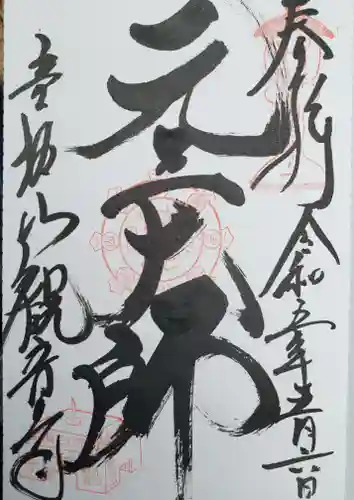 奉拝
令和五年十一月六日
元三大師
音坂山観音寺